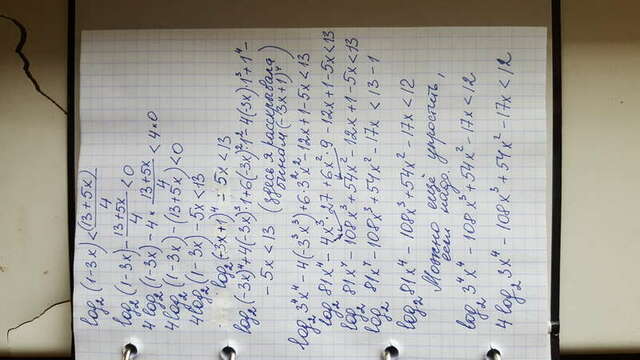 log₂(1-3x) < (13+5x)/4
log₂(1-3x) - (13+5x)/4 < 0
4log₂(1-3x) - 4 · (13+5x)/4 < 4·0
4log₂(1-3x) - (13+5x) < 0
4log₂(1-3x) - 5x < 13
log₂(-3x+1)⁴ - 5x < 13
log₂(-3x)⁴ + 4(-3x)³·1 + 6(-3x)²·1² - 4(-3x)·1³ + 1⁴ -
- 5x < 13 (здесь я раскрывала
бином (-3x+1)⁴)
log₂ 3⁴x⁴ - 4(-3³x³) + 6·3²x² - 12x + 1 - 5x < 13
log₂ 81x⁴ - 4x³·27 + 6x²·9 - 12x + 1 - 5x < 13
log₂ 81x⁴ - 108x³ + 54x² - 12x + 1 - 5x < 13
log₂ 81x - 108x³ + 54x² - 17x < 13 - 1
log₂ 81x⁴ - 108x³ + 54x² - 17x < 12
Можно еще упростить,
если надо.
log₂ 3⁴x⁴ - 108x³ + 54x² - 17x < 12
4log₂ 3x⁴ - 108x³ + 54x² - 17x < 12